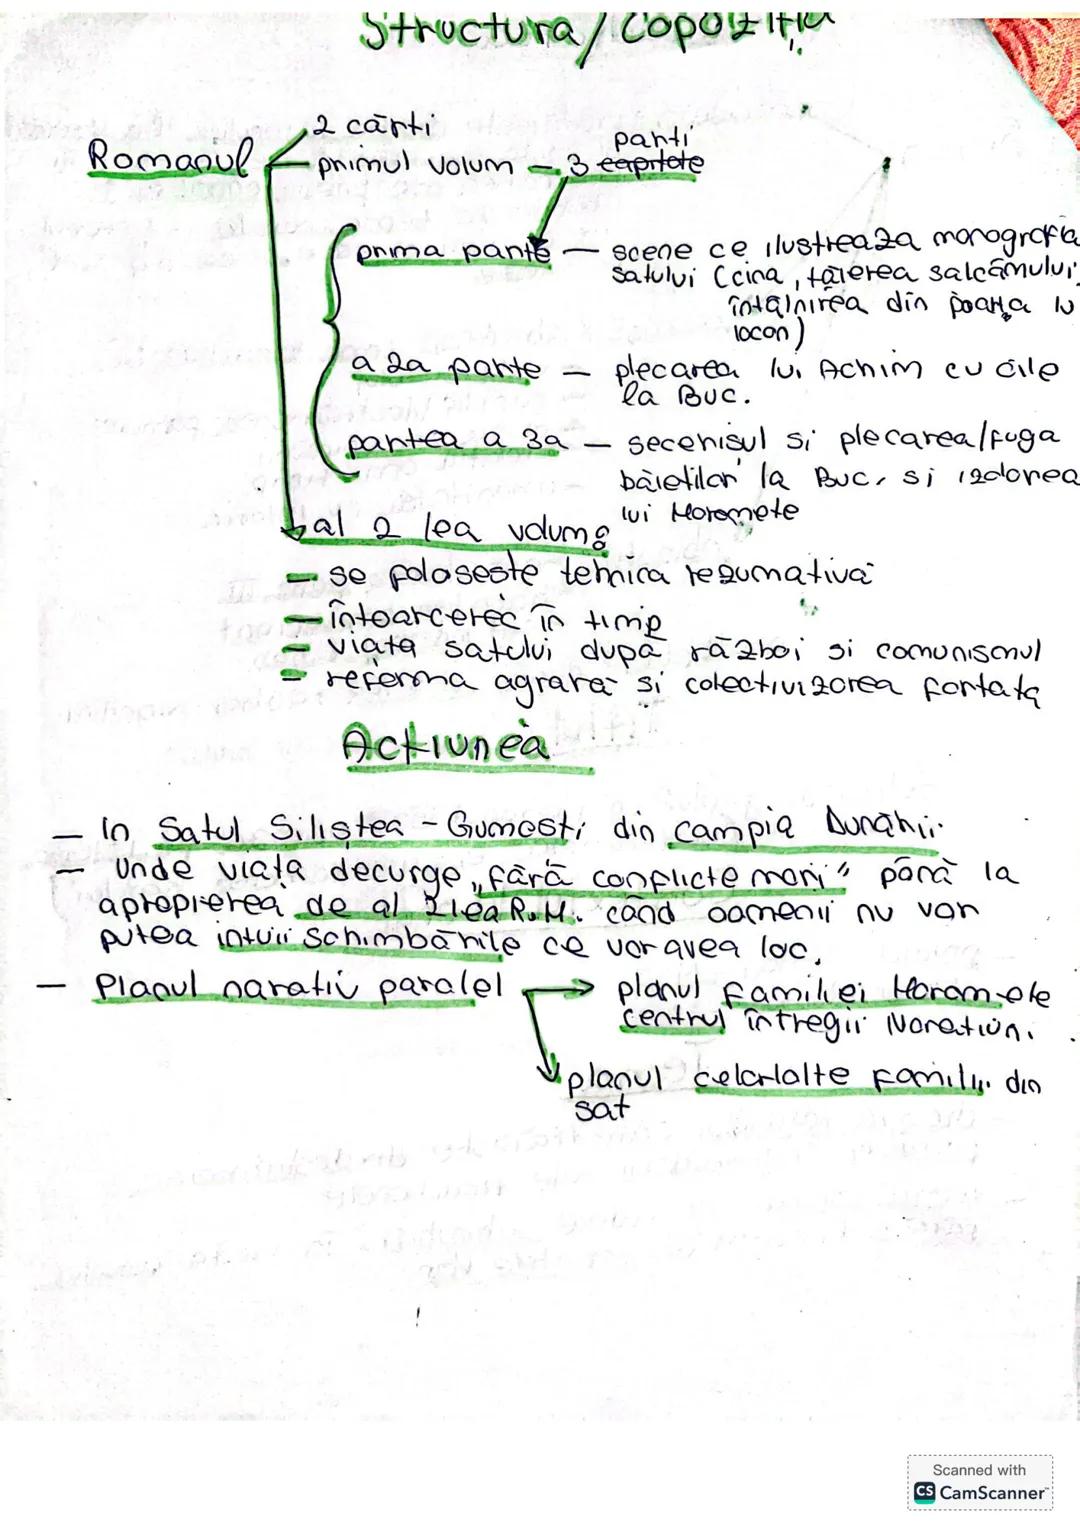 Structura/Copoziția
2 cărți
Romanul
parti
primul volum - 3 capitole
prima parte - scene ce ilustreaza monografia
satului (cina, tăierea salcâmului,
întâlnirea din poarța lu
Iocan)
a 2a parte - plecarea lui Achim cu oile
la Buc.
partea a 3a - secerișul si plecarea/fuga
băietilor la Buc, si izolarea
lui Moromete
al 2 lea volum:
- se foloseste tehnica rezumativă
- întoarcerec în timp
- viața satului după război si comunismul
- reforma agrară si colectivizarea fortată
Actiunea
- În Satul Siliștea - Gumesti din campia Dunării.
- Unde viața decurge „fără conflicte mari" până la
apropierea de al 2 lea R.M. când oamenii nu vor
putea intuii schimbările ce vor avea loc.
- Planul narativ paralel → planul familiei Moromete
centrul întregii Naratiuni.
planul celorlalte familii din
sat
Scanned with
CS CamScanner